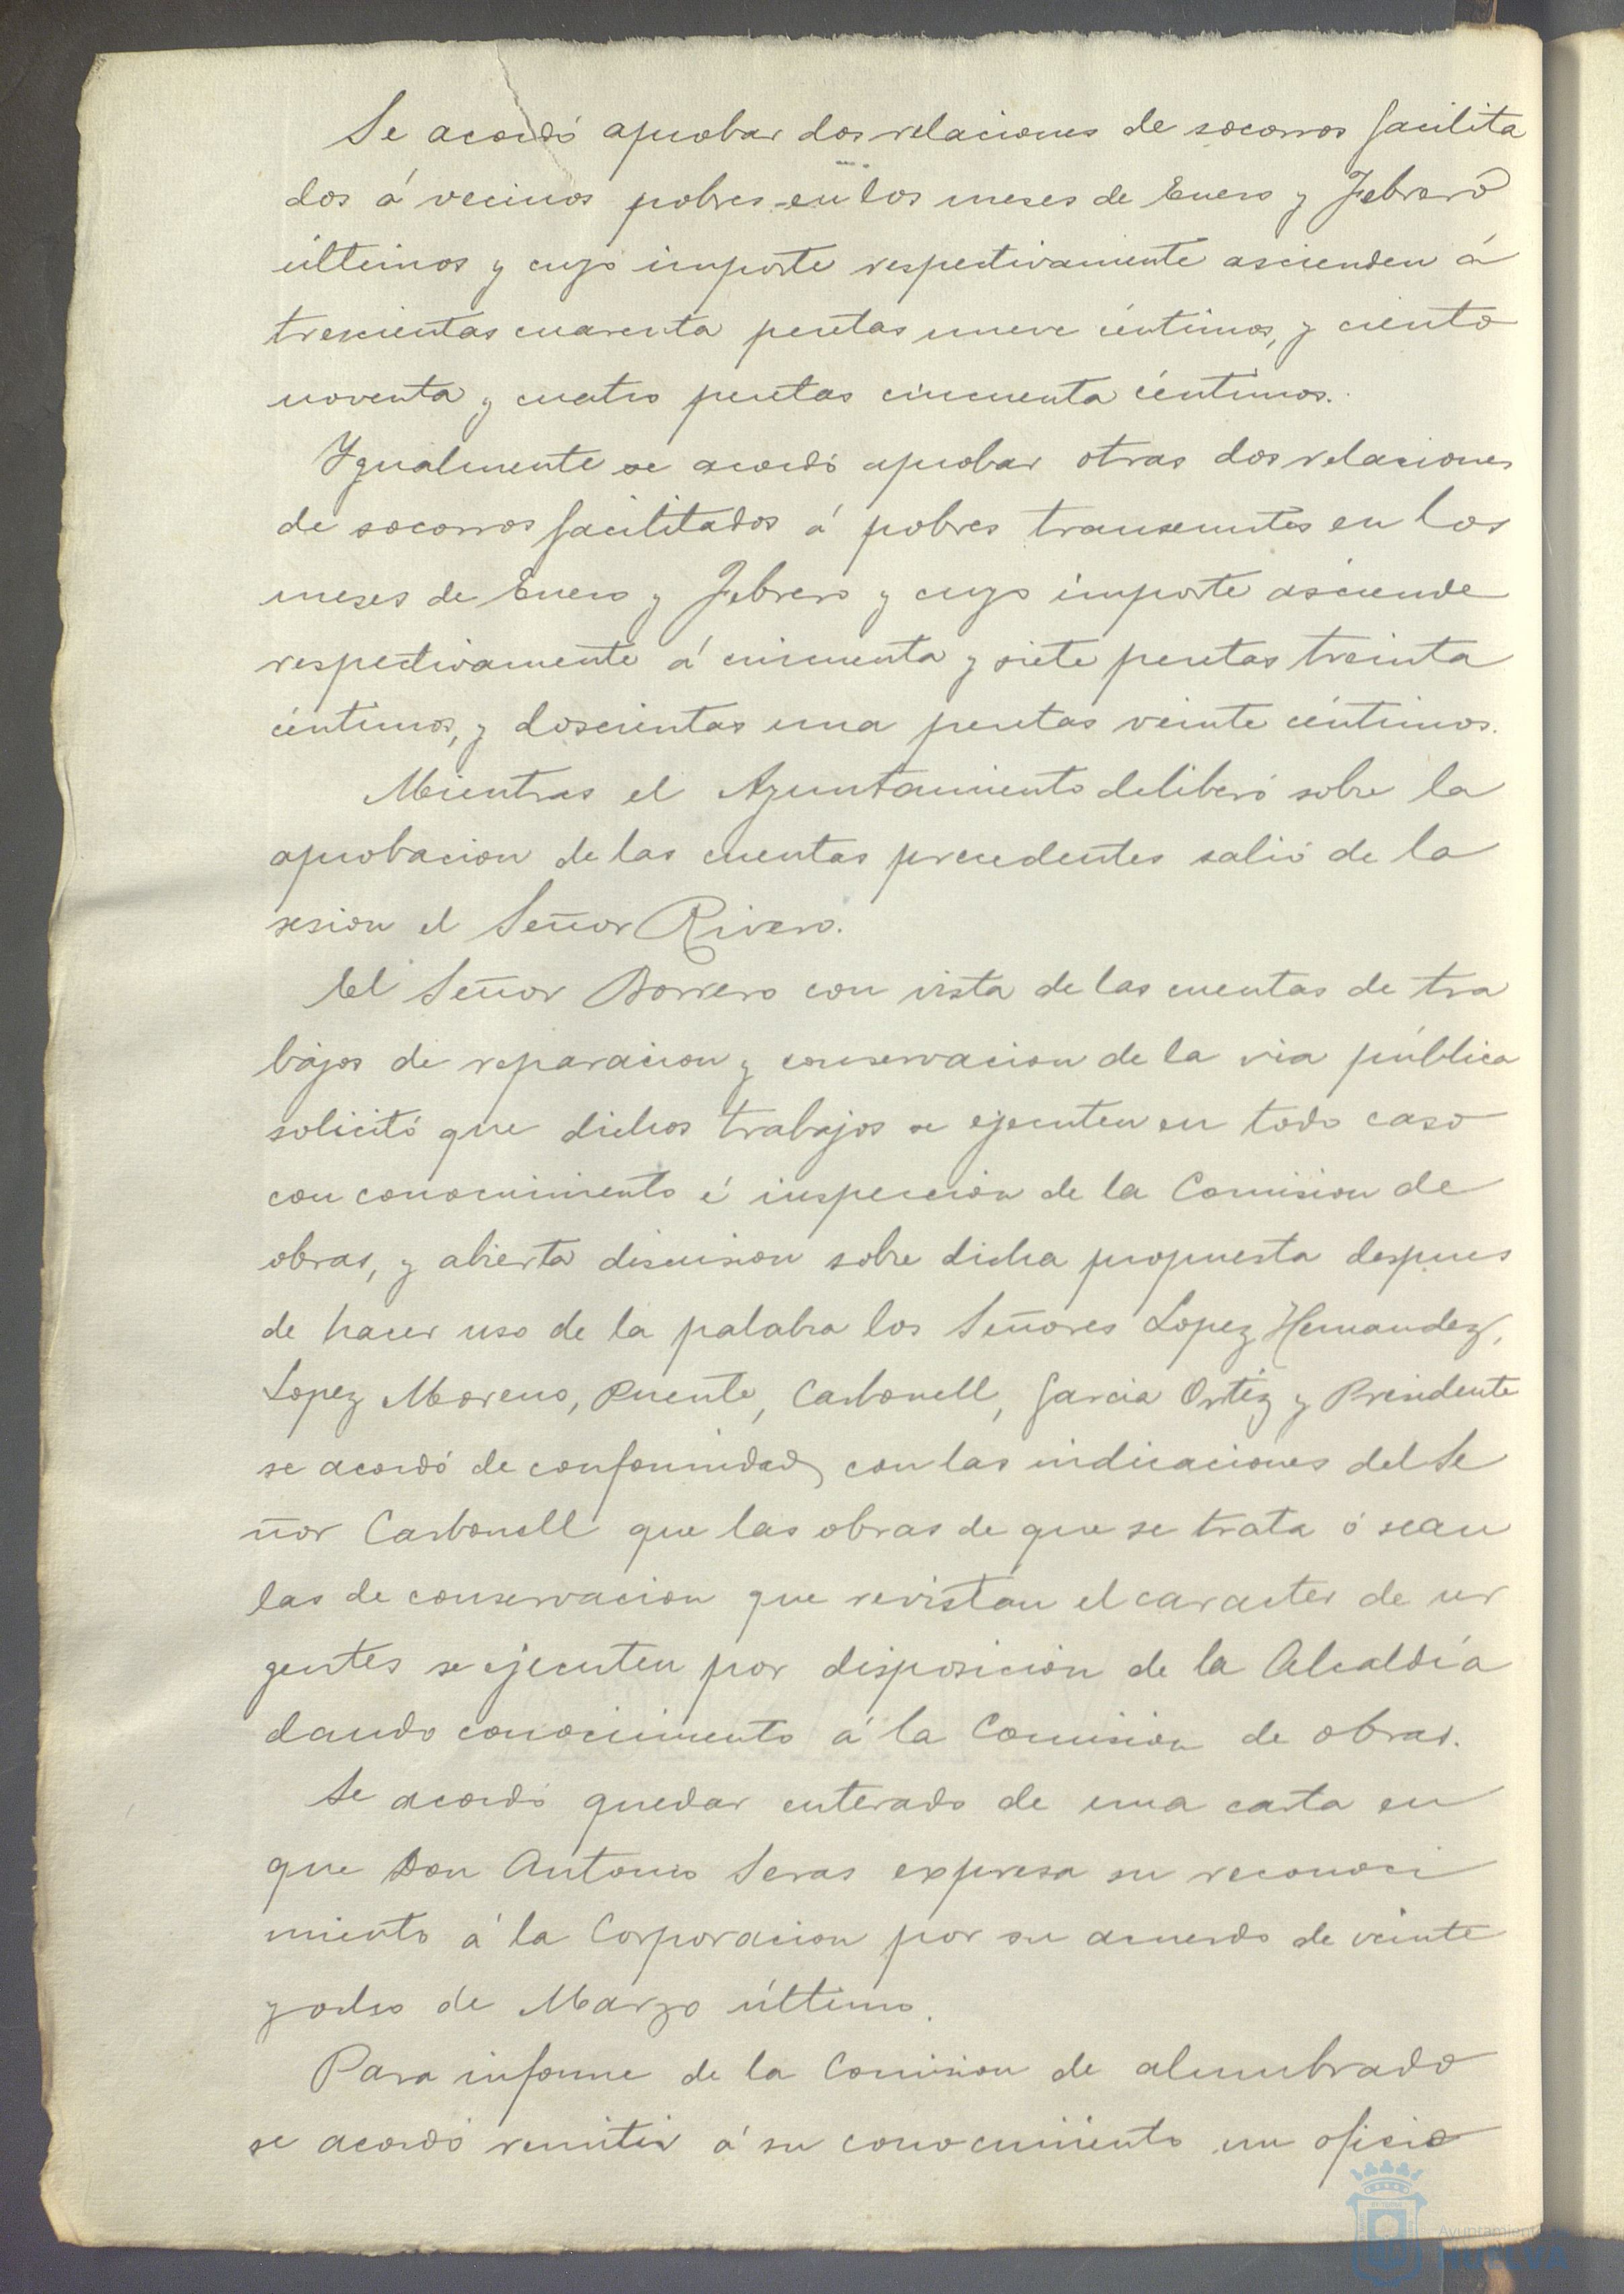 Se acordó aprobar dos relaciones de socorros facilita
dos á vecinos pobres en los meses de Enero y Febrero
últimos y cuyo importe respectivamente ascienden á
trescientas cuarenta pesetas nueve céntimos, y ciento
noventa y cuatro pesetas cincuenta céntimos.
Ygualmente se acordó aprobar otras dos relaciones
de socorros facilitados á pobres transeuntes en los
meses de Enero y Febrero y cuyo importe asciende
respectivamente á cincuenta y siete pesetas treinta
céntimos, y doscientas una pesetas veinte céntimos.
Mientras el Ayuntamiento deliberó sobre la
aprobacion de las cuentas precedentes salió de la
sesion el Señor Rivero.
El Señor Borrero con vista de las cuentas de tra
bajos de reparacion y conservacion de la via pública
solicitó que dichos trabajos se ejecuten en todo caso
con conocimiento é inspeccion de la Comision de
obras, y abierta discusion sobre dicha propuesta despues
de hacer uso de la palabra los Señores Lopez Hernandez,
Lopez Moreno, Puente, Carbonell, Garcia Ortiz y Presidente
se acordó de conformidad con las indicaciones del Se
ñor Carbonell que las obras de que se trata ó sean
las de conservacion que revistan el caracter de ur
gentes se ejecuten por disposicion de la Alcaldía
dando conocimiento á la Comision de obras.
Se acordó quedar enterado de una carta en
que Don Antonio Seras expresa su reconoci
miento á la Corporacion por su acuerdo de veinte
y ocho de Marzo último.
Para informe de la Comision de alumbrado
se acordó remitir á su conocimiento un oficio
Ayuntamiento
HUELVA